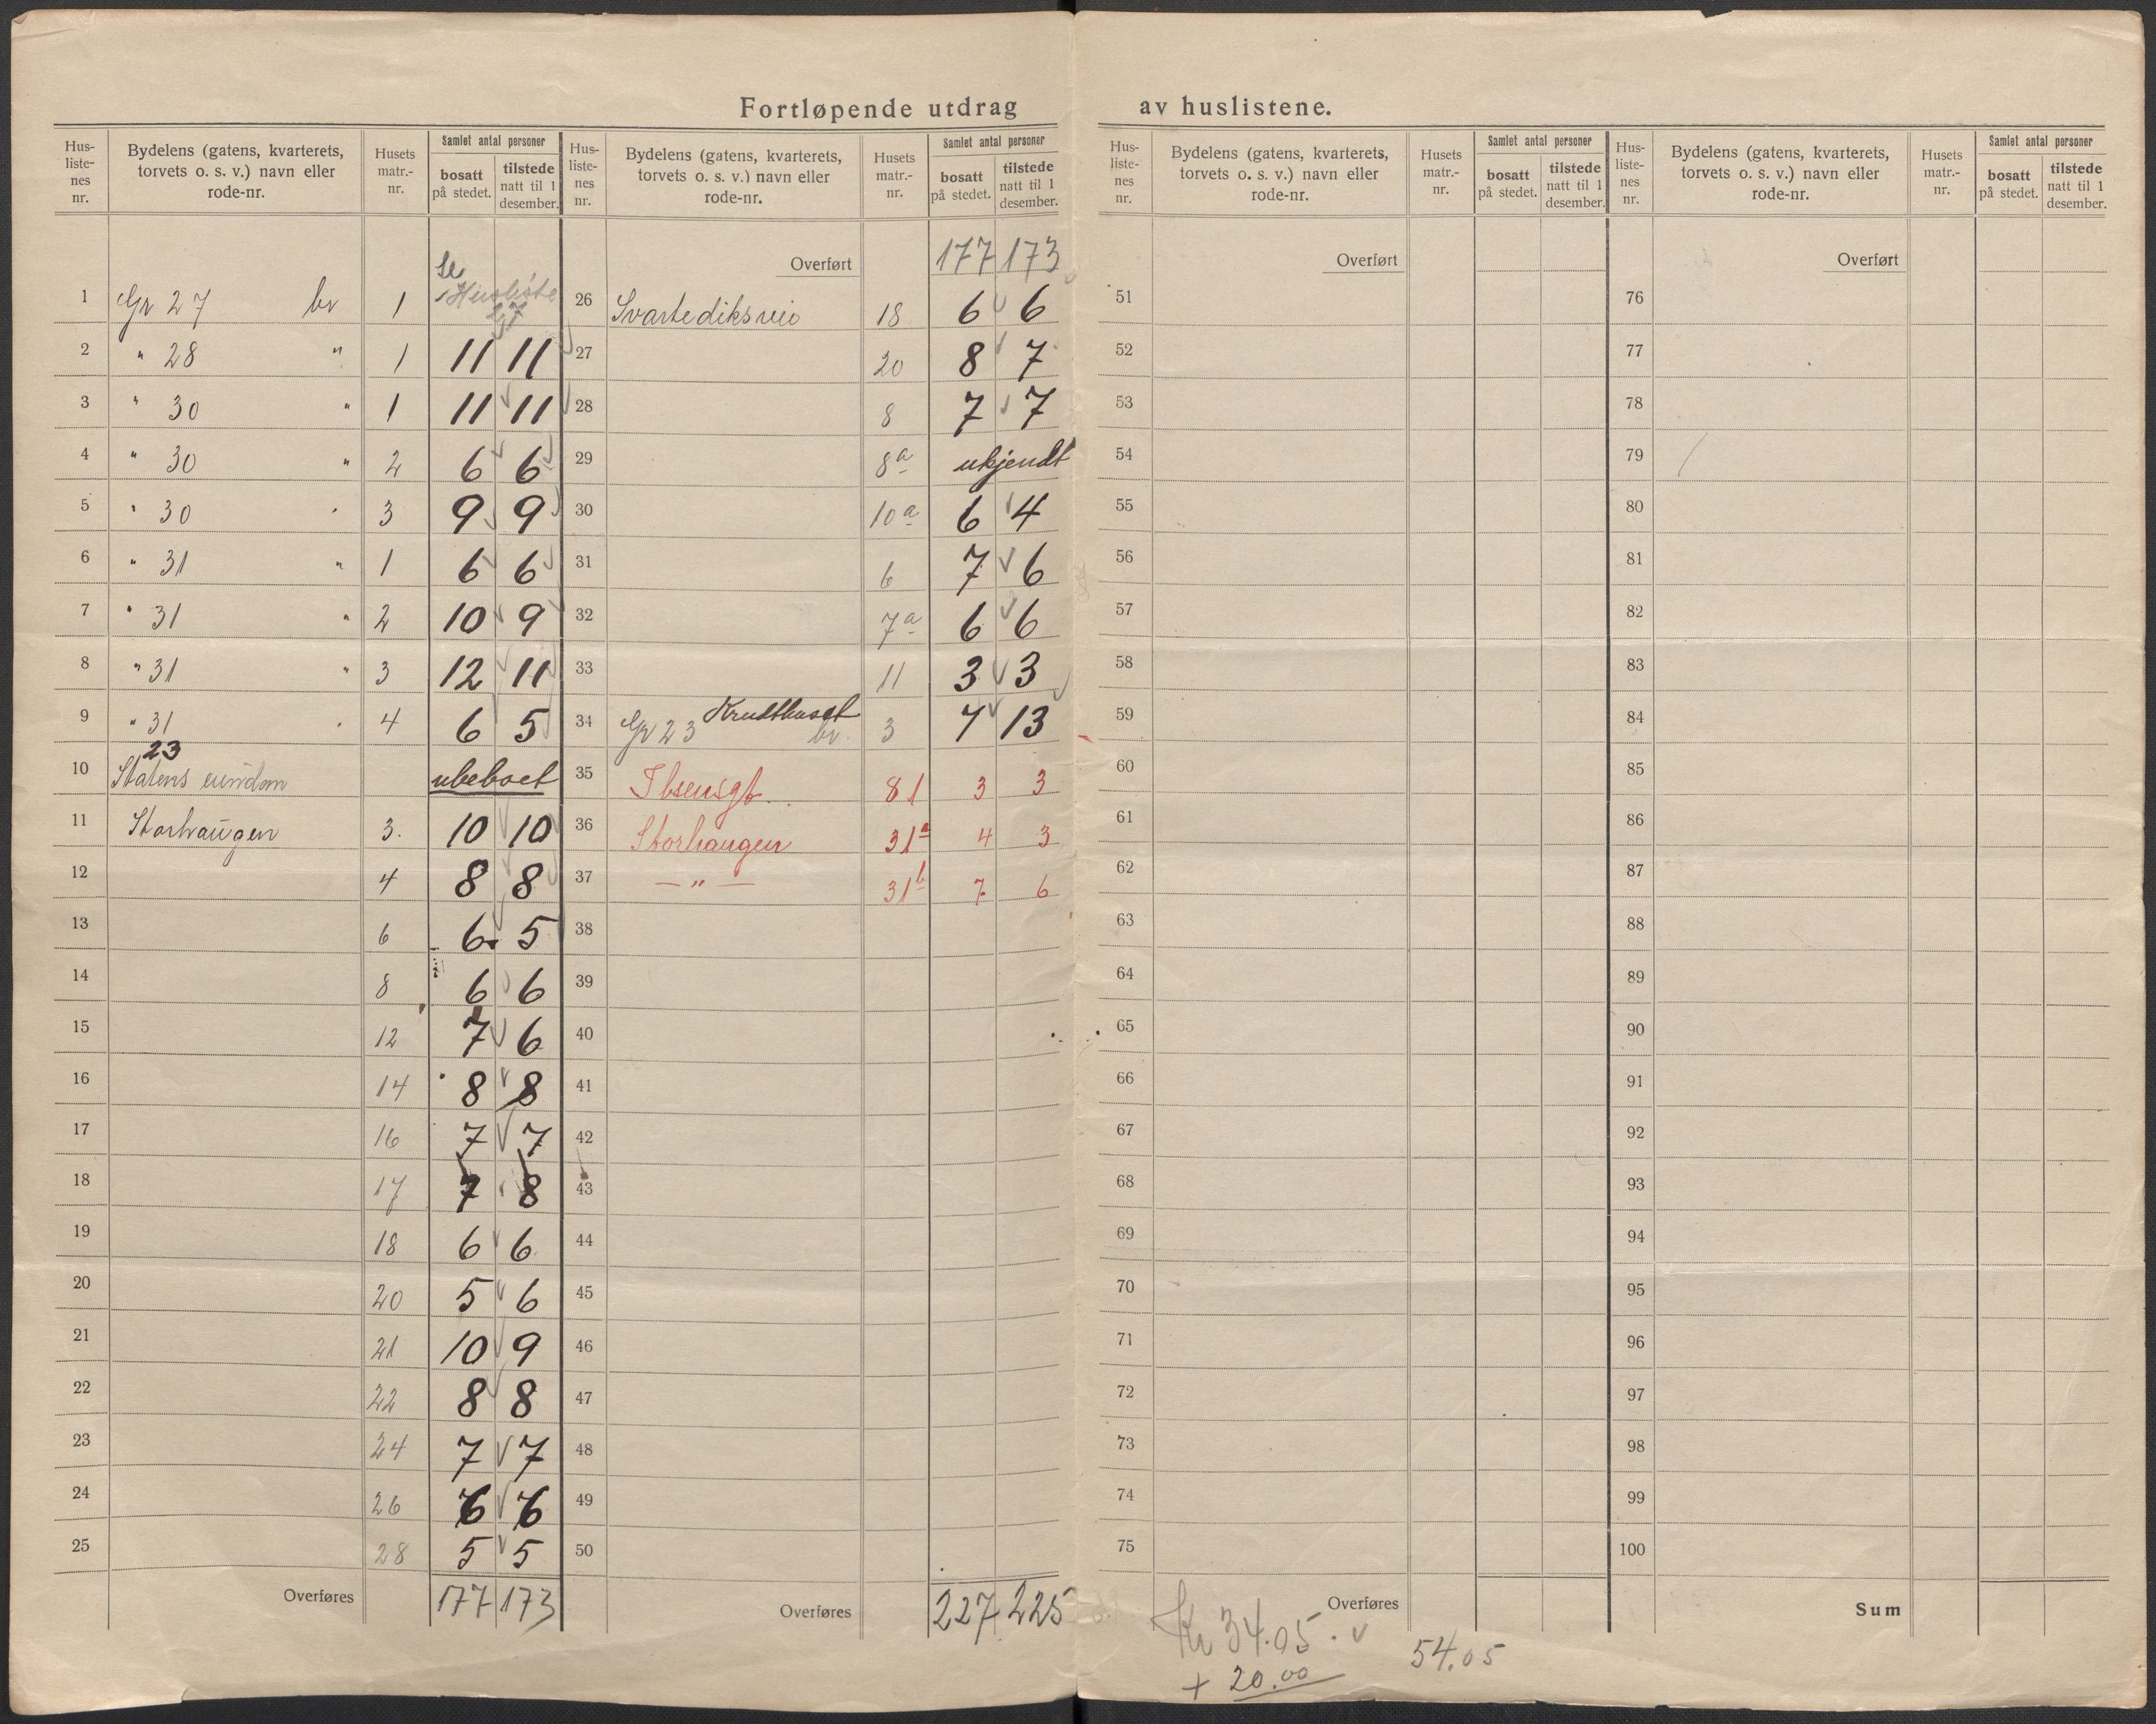 Fortløpende utdrag av huslistene.
Hus-listenes nr. | Bydelens (gatens, kvarterets, torvets o. s. v.) navn eller rode-nr. | Husets matr.-nr. | Samlet antal personer bosatt på stedet. | tilstede natt til 1 desember.
1 Gr 27 br 1 Se Husliste
2 " 28 " 1 11 11
3 " 30 " 1 11 11
4 " 30 " 2 6 6
5 " 30 " 3 9 9
6 " 31 " 1 6 6
7 " 31 " 2 10 9
8 " 31 " 3 12 11
9 " 31 " 4 6 5
23
10 Statens eiendom ubeboet
11 Storhaugen 3. 10 10
12 4 8 8
13 6 6 5
14 8 6 6
15 12 7 6
16 14 8 8
17 16 7 7
18 17 7 8
19 18 6 6
20 20 5 6
21 21 10 9
22 22 8 8
23 24 7 7
24 26 6 6
25 28 5 5
Overføres 177 173
Hus-listenes nr. | Bydelens (gatens, kvarterets, torvets o. s. v.) navn eller rode-nr. | Husets matr.-nr. | Samlet antal personer bosatt på stedet. | tilstede natt til 1 desember.
Overført 177 173
26 Svartediksvei 18 6 6
27 20 8 7
28 8 7 7
29 8a ukjendt
30 10a 6 4
31 6 7 6
32 7a 6 6
33 11 3 3
34 Gr 23 Krudthuset br. 3 7 13
35 Ibsensgt. 81 3 3
36 Storhaugen 31a 4 3
37 — " — 31b 7 6
38
39
40
41
42
43
44
45
46
47
48
49
50
Overføres 227 225
Hus-listenes nr. | Bydelens (gatens, kvarterets, torvets o. s. v.) navn eller rode-nr. | Husets matr.-nr. | Samlet antal personer bosatt på stedet. | tilstede natt til 1 desember.
Overført
51
52
53
54
55
56
57
58
59
60
61
62
63
64
65
66
67
68
69
70
71
72
73
74
75
Overføres
Kr 34.05.
+ 20.00
54.05
Hus-listenes nr. | Bydelens (gatens, kvarterets, torvets o. s. v.) navn eller rode-nr. | Husets matr.-nr. | Samlet antal personer bosatt på stedet. | tilstede natt til 1 desember.
Overført
76
77
78
79
80
81
82
83
84
85
86
87
88
89
90
91
92
93
94
95
96
97
98
99
100
Sum